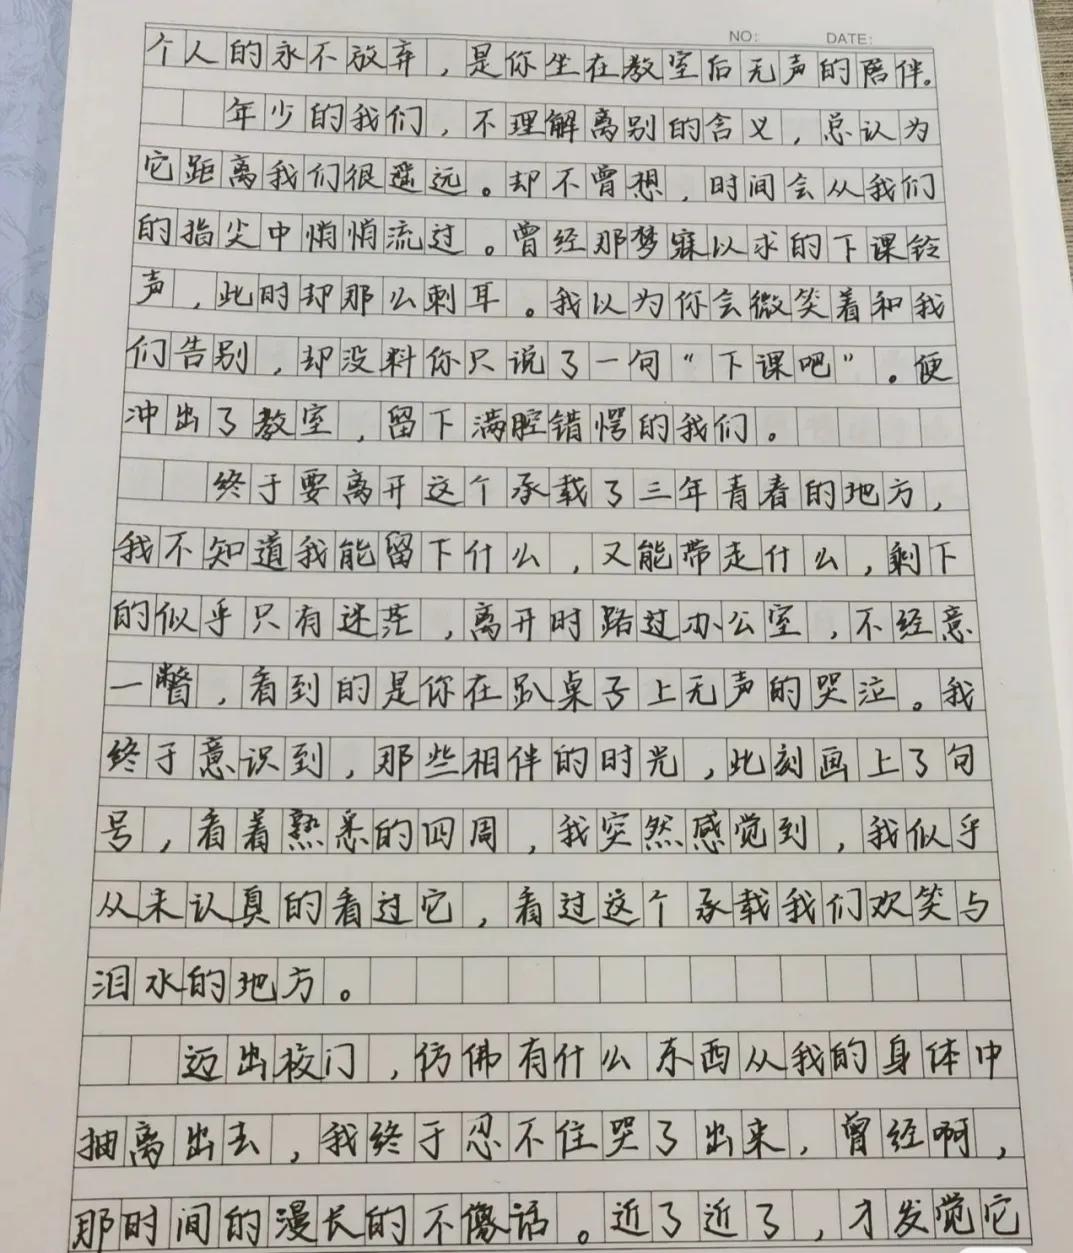 NO: DATE:
个人的永不放弃，是你坐在教室后无声的陪伴。
年少的我们，不理解离别的含义，总认为
它距离我们很遥远。却不曾想，时间会从我们
的指尖中悄悄流过。曾经那梦寐以求的下课铃
声，此时却那么刺耳。我以为你会微笑着和我
们告别，却没料你只说了一句“下课吧”。便
冲出了教室，留下满腔错愕的我们。
终于要离开这个承载了三年青春的地方，
我不知道我能留下什么，又能带走什么，剩下
的似乎只有迷茫，离开时路过办公室，不经意
一瞥，看到的是你在趴桌子上无声的哭泣。我
终于意识到，那些相伴的时光，此刻画上了句
号，看着熟悉的四周，我突然感觉到，我似乎
从未认真的看过它，看过这个承载我们欢笑与
泪水的地方。
迈出校门，仿佛有什么东西从我的身体中
抽离出去，我终于忍不住哭了出来，曾经啊，
那时间的漫长的不像话。近了近了，才发觉它